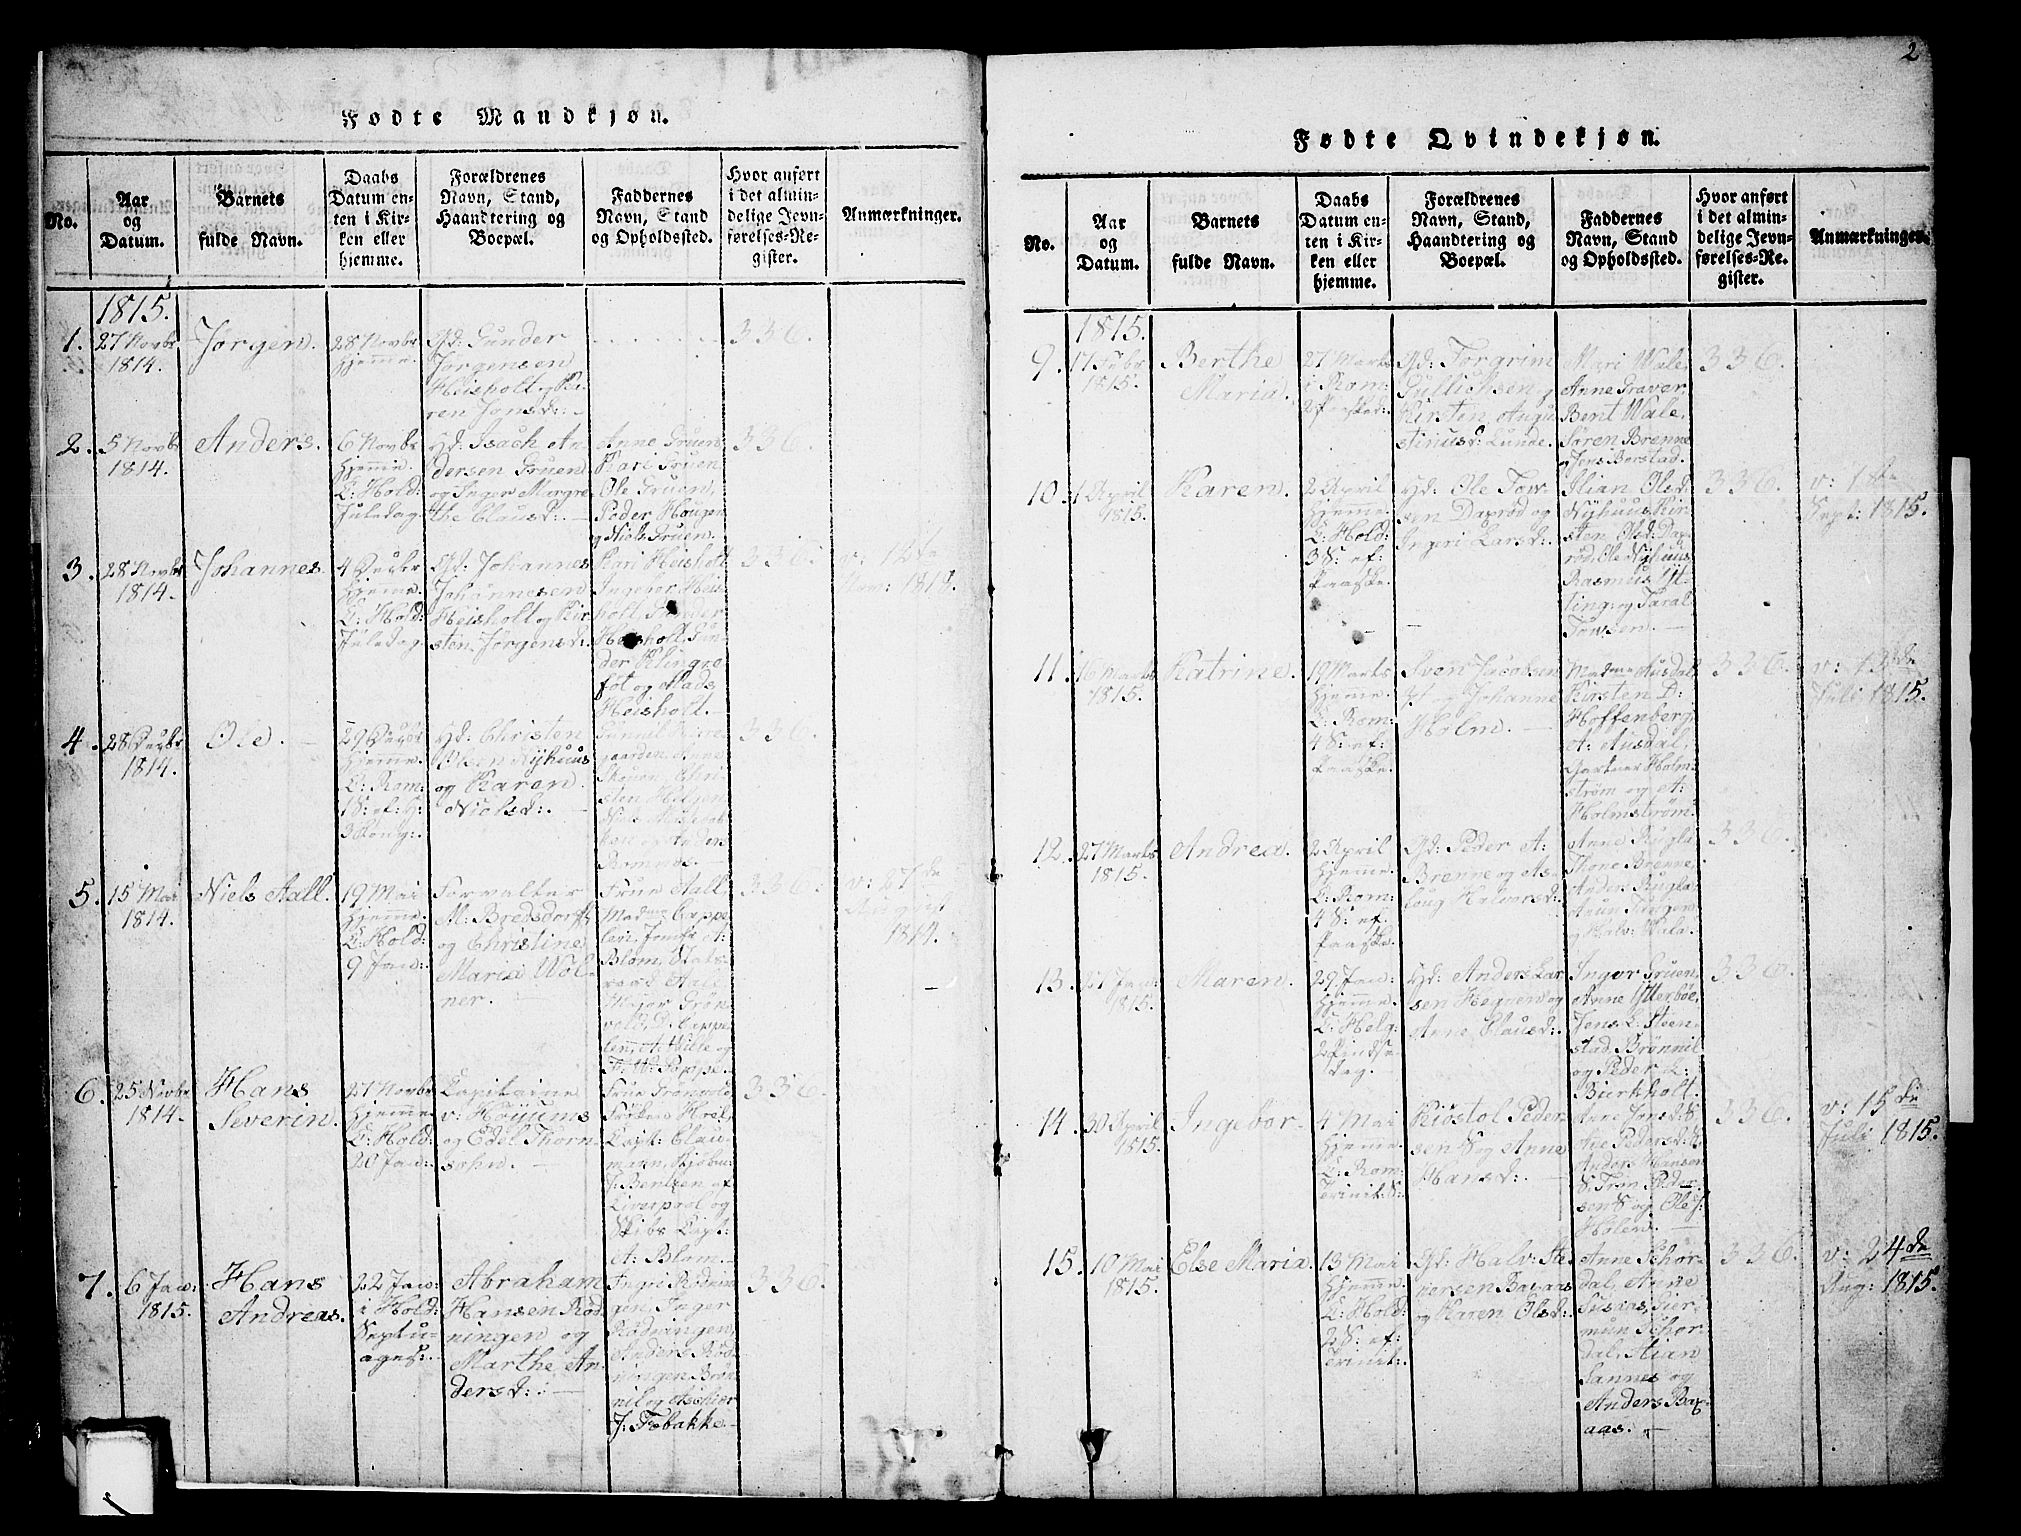 2
Fødte Mandkjøn.
No.
Aar
og
Datum.
Barnets
fulde Navn.
Daabs
Datum en-
ten i Kir-
ken eller
hjemme.
Forældrenes
Navn, Stand,
Haandtering og
Boepæl.
Faddernes
Navn, Stand
og Opholdssted.
Hvor anført
i det almin-
delige Jevn-
førelses-Re-
gister.
Anmærkninger.
1815.
1.
27 Novbr
1814.
Jørgen.
28 Novbr
hjemme.
Gd: Gunder
Jørgensen
Heisholt og Ka-
ren Jonsd:
336.
2.
5 Novbr
1814.
Anders.
6 Novbr
hjemme.
C: Hold:
Juledag.
Hd: Isach An-
dersen Gruen
og Inger Margre-
the Clausd:
Anne Gruen,
Kari Gruen,
Ole Gruen,
Peder Hougen
og Niels Gruen.
336.
3.
28 Novbr
1814.
Johannes
4 Decbr
hjemme.
C: Hold:
Juledag
Gd: Johannes
Johannesen
Heisholt og Kir-
sten Jørgensd:
Kari Heisholt
Ingebor Hei-
holt, Gunder
Heisholt, Gun-
der Klingre-
fot og Mads
Heisholt.
336
v: 12te
Nov: 1814.
4.
28 Decbr
1814.
Ole.
29 Decbr
hjemme.
C: Rom:
1 S: ef: H:
3 Kong:
Hd: Christen
Olsen Nyhuus
og Karen
Nielsd:
336.
5.
15 Mai
1814.
Niels Aall.
19 Mai
hjemme.
C: Hold:
9 Jan:
Forvalter
M: Bredsdorff
og Christine
Maria Wöl-
ner.
Frue Aall
Madme Cappe-
len, Jomfr A:
Blom, Stats-
raad Aall
Major Grön-
vold, D. Cappe-
len, A: Hitte og
F: W: Poppe.
336.
v: 27de
August
1814.
6.
25 Novbr
1814.
Hans
Severin.
27 Novbr
hjemme
C: Hold:
20 Jan:
Capitaine
v: Höyums
og Edel Thorn-
sohn.
Frue Grönvold
Capt: Clau-
J: Bentzen af
Liverpool og
Skibs Capt:
A: Blom.
336.
7.
6 Jan:
1815.
Hans
Andreas.
22 Jan:
i Hold:
Septu-
ages:
Abraham
Hansen Rød-
ningen og
Marthe An-
dersd:
Ingri Rødnin-
gen, Inger
Rødningen,
Anders Rød-
ningen, Brøn-
nil og Aschior
J: Febakke.
336.
Fødte Qvindekjøn.
No.
Aar
og
Datum.
Barnets
fulde Navn.
Daabs
Datum en-
ten i Kir-
ken eller
hjemme.
Forældrenes
Navn, Stand,
Haandtering og
Boepæl.
Faddernes
Navn, Stand
og Opholdssted.
Hvor anført
i det almin-
delige Jevn-
førelses-Re-
gister.
Anmærkninger.
1815.
9.
17 Febr
1815.
Berthe
Maria.
27 Marts
i Rom:
2 Paasked:
Gd: Torgrim
Gullichsen og
Kirsten, Augu-
stinusd: Lunde.
Mari Wale,
Anne Graver
Bent Wale,
Søren Brenne
og Jens Borstad.
336.
10.
1 April
1815.
Karen.
2 April
hjemme.
C: Hold:
3 S: ef:
Paaske.
Hd: Ole Tov-
sen Daxrød og
Ingeri Larsd:
Ilian Olsd:
Nyhuus, Kir-
sten Olsd: Dax-
rød, Ole Nyhuus
Rasmus Yt-
ting: og Taral
Tovsen.
336.
v: 18de
Sept: 1815.
11.
16 Marts
1815.
Katrine.
19 Marts
hjemme.
C: Rom:
4 S: ef:
Paaske.
Sven Jacobsen
og Johanne
Holm.
Madme Ausdal,
Kirsten D:
Hoffenberg,
A: Ausdal,
Gartner Holm-
strøm og A:
Holmstrøm.
336.
v: 13de
Juli 1815.
12.
27 Marts
1815.
Andrea.
2 April
hjemme.
C: Rom:
4 S: ef:
Paaske.
Gd: Peder A:
Brenne og As-
loug Halvorsd:
Anne Rugla
Thone Brenne,
Anders Rugla,
og Halv: Wale.
336.
13.
27 Jan:
1815.
Maren.
29 Jan:
hjemme.
C: Helg:
2 Pindse-
dag.
Hd: Anders Lar-
sen Hegnen og
Anne Clausd:
Inger Gruen,
Anne Ytterböe,
Jens L: Steen-
stad, Brønnil
og Peder L:
Bierkholt.
336.
14.
30 April
1815.
Ingebor
4 Mai
hjemme.
C: Rom:
Trinit: S:
Kiöstol Peder-
sen S og Anne
Hansd:
Anne Jonsd: S
Ane Pedersd: S.
Anders Hansen
S, Tron Peder-
sen S og Ole J:
Holen.
336.
v: 15de
Juli 1815.
15.
10 Mai
1815.
Else Maria.
13 Mai
hjemme.
C: Hold:
2 S: ef:
Trinit:
Gd: Halv: Ste-
nersen Baxaas
og Karen Olsd:
Anne Schor-
dal, Anne
Susaas, Sier-
mun Schor-
dal, Kian
Sannes og
Anders Bax-
aas.
336.
v: 24de
Aug: 1815.